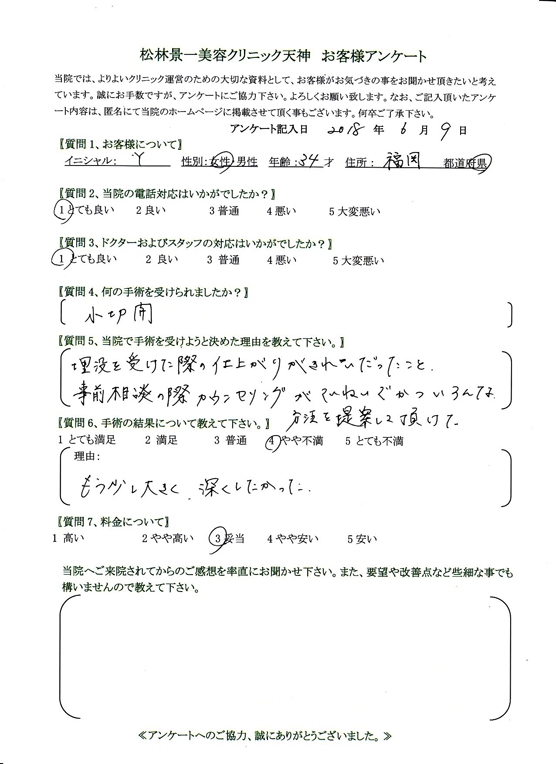 松林景一美容クリニック天神　お客様アンケート
当院では、よりよいクリニック運営のための大切な資料として、お客様がお気づきの事をお聞かせ頂きたいと考え
ています。誠にお手数ですが、アンケートにご協力下さい。よろしくお願い致します。なお、ご記入頂いたアンケ
ート内容は、匿名にて当院のホームページに掲載させて頂く事もございます。何卒ご了承下さい。
アンケート記入日　2018 年 6 月 9 日
〖質問 1、お客様について〗
イニシャル： Y　性別：女性・男性　年齢：34 才　住所： 福岡　都道府県
〖質問 2、当院の電話対応はいかがでしたか？〗
1 とても良い　2 良い　3 普通　4 悪い　5 大変悪い
〖質問 3、ドクターおよびスタッフの対応はいかがでしたか？〗
1 とても良い　2 良い　3 普通　4 悪い　5 大変悪い
〖質問 4、何の手術を受けられましたか？〗
小切開
〖質問 5、当院で手術を受けようと決めた理由を教えて下さい。〗
埋没を受けた際の仕上がりがきれいだったこと.
事前相談の際カウンセリングがていねいでかついろんな
方法を提案して頂けた
〖質問 6、手術の結果について教えて下さい。〗
1 とても満足　2 満足　3 普通　4 やや不満　5 とても不満
理由：
もう少し大きく、深くしたかった.
〖質問 7、料金について〗
1 高い　2 やや高い　3 妥当　4 やや安い　5 安い
当院へご来院されてからのご感想を率直にお聞かせ下さい。また、要望や改善点など些細な事でも
構いませんので教えて下さい。
≪アンケートへのご協力、誠にありがとうございました。≫